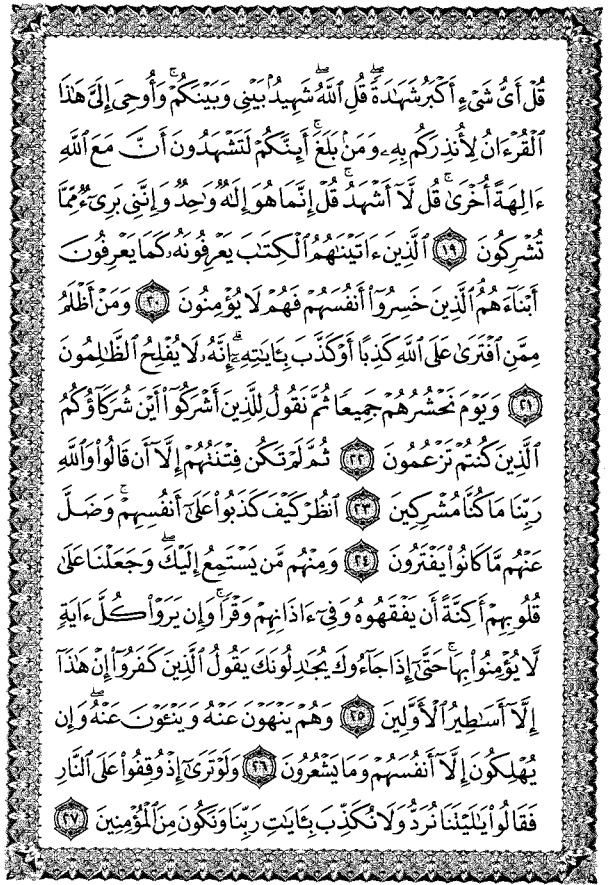 قُلْ أَىُّ شَىْءٍ أَكْبَرُ شَهَٰدَةً ۖ قُلِ ٱللَّهُ ۖ شَهِيدٌۢ بَيْنِى وَبَيْنَكُمْ ۚ وَأُوحِىَ إِلَىَّ هَٰذَا
ٱلْقُرْءَانُ لِأُنذِرَكُم بِهِۦ وَمَنۢ بَلَغَ ۚ أَئِنَّكُمْ لَتَشْهَدُونَ أَنَّ مَعَ ٱللَّهِ
ءَالِهَةً أُخْرَىٰ ۚ قُل لَّآ أَشْهَدُ ۚ قُلْ إِنَّمَا هُوَ إِلَٰهٌ وَٰحِدٌ وَإِنَّنِى بَرِىٓءٌ مِّمَّا
تُشْرِكُونَ ١٩ ٱلَّذِينَ ءَاتَيْنَٰهُمُ ٱلْكِتَٰبَ يَعْرِفُونَهُۥ كَمَا يَعْرِفُونَ
أَبْنَآءَهُمُ ٱلَّذِينَ خَسِرُوٓا۟ أَنفُسَهُمْ فَهُمْ لَا يُؤْمِنُونَ ٢٠ وَمَنْ أَظْلَمُ
مِمَّنِ ٱفْتَرَىٰ عَلَى ٱللَّهِ كَذِبًا أَوْ كَذَّبَ بِـَٔايَٰتِهِۦٓ ۗ إِنَّهُۥ لَا يُفْلِحُ ٱلظَّٰلِمُونَ
٢١ وَيَوْمَ نَحْشُرُهُمْ جَمِيعًا ثُمَّ نَقُولُ لِلَّذِينَ أَشْرَكُوٓا۟ أَيْنَ شُرَكَآؤُكُمُ
ٱلَّذِينَ كُنتُمْ تَزْعُمُونَ ٢٢ ثُمَّ لَمْ تَكُن فِتْنَتُهُمْ إِلَّآ أَن قَالُوا۟ وَٱللَّهِ
رَبِّنَا مَا كُنَّا مُشْرِكِينَ ٢٣ ٱنظُرْ كَيْفَ كَذَبُوا۟ عَلَىٰٓ أَنفُسِهِمْ ۚ وَضَلَّ
عَنْهُم مَّا كَانُوا۟ يَفْتَرُونَ ٢٤ وَمِنْهُم مَّن يَسْتَمِعُ إِلَيْكَ ۖ وَجَعَلْنَا عَلَىٰ
قُلُوبِهِمْ أَكِنَّةً أَن يَفْقَهُوهُ وَفِىٓ ءَاذَانِهِمْ وَقْرًا ۚ وَإِن يَرَوْا۟ كُلَّ ءَايَةٍ
لَّا يُؤْمِنُوا۟ بِهَا ۚ حَتَّىٰٓ إِذَا جَآءُوكَ يُجَٰدِلُونَكَ يَقُولُ ٱلَّذِينَ كَفَرُوٓا۟ إِنْ هَٰذَآ
إِلَّآ أَسَٰطِيرُ ٱلْأَوَّلِينَ ٢٥ وَهُمْ يَنْهَوْنَ عَنْهُ وَيَنْـَٔوْنَ عَنْهُ ۖ وَإِن
يُهْلِكُونَ إِلَّآ أَنفُسَهُمْ وَمَا يَشْعُرُونَ ٢٦ وَلَوْ تَرَىٰٓ إِذْ وُقِفُوا۟ عَلَى ٱلنَّارِ
فَقَالُوا۟ يَٰلَيْتَنَا نُرَدُّ وَلَا نُكَذِّبَ بِـَٔايَٰتِ رَبِّنَا وَنَكُونَ مِنَ ٱلْمُؤْمِنِينَ ٢٧